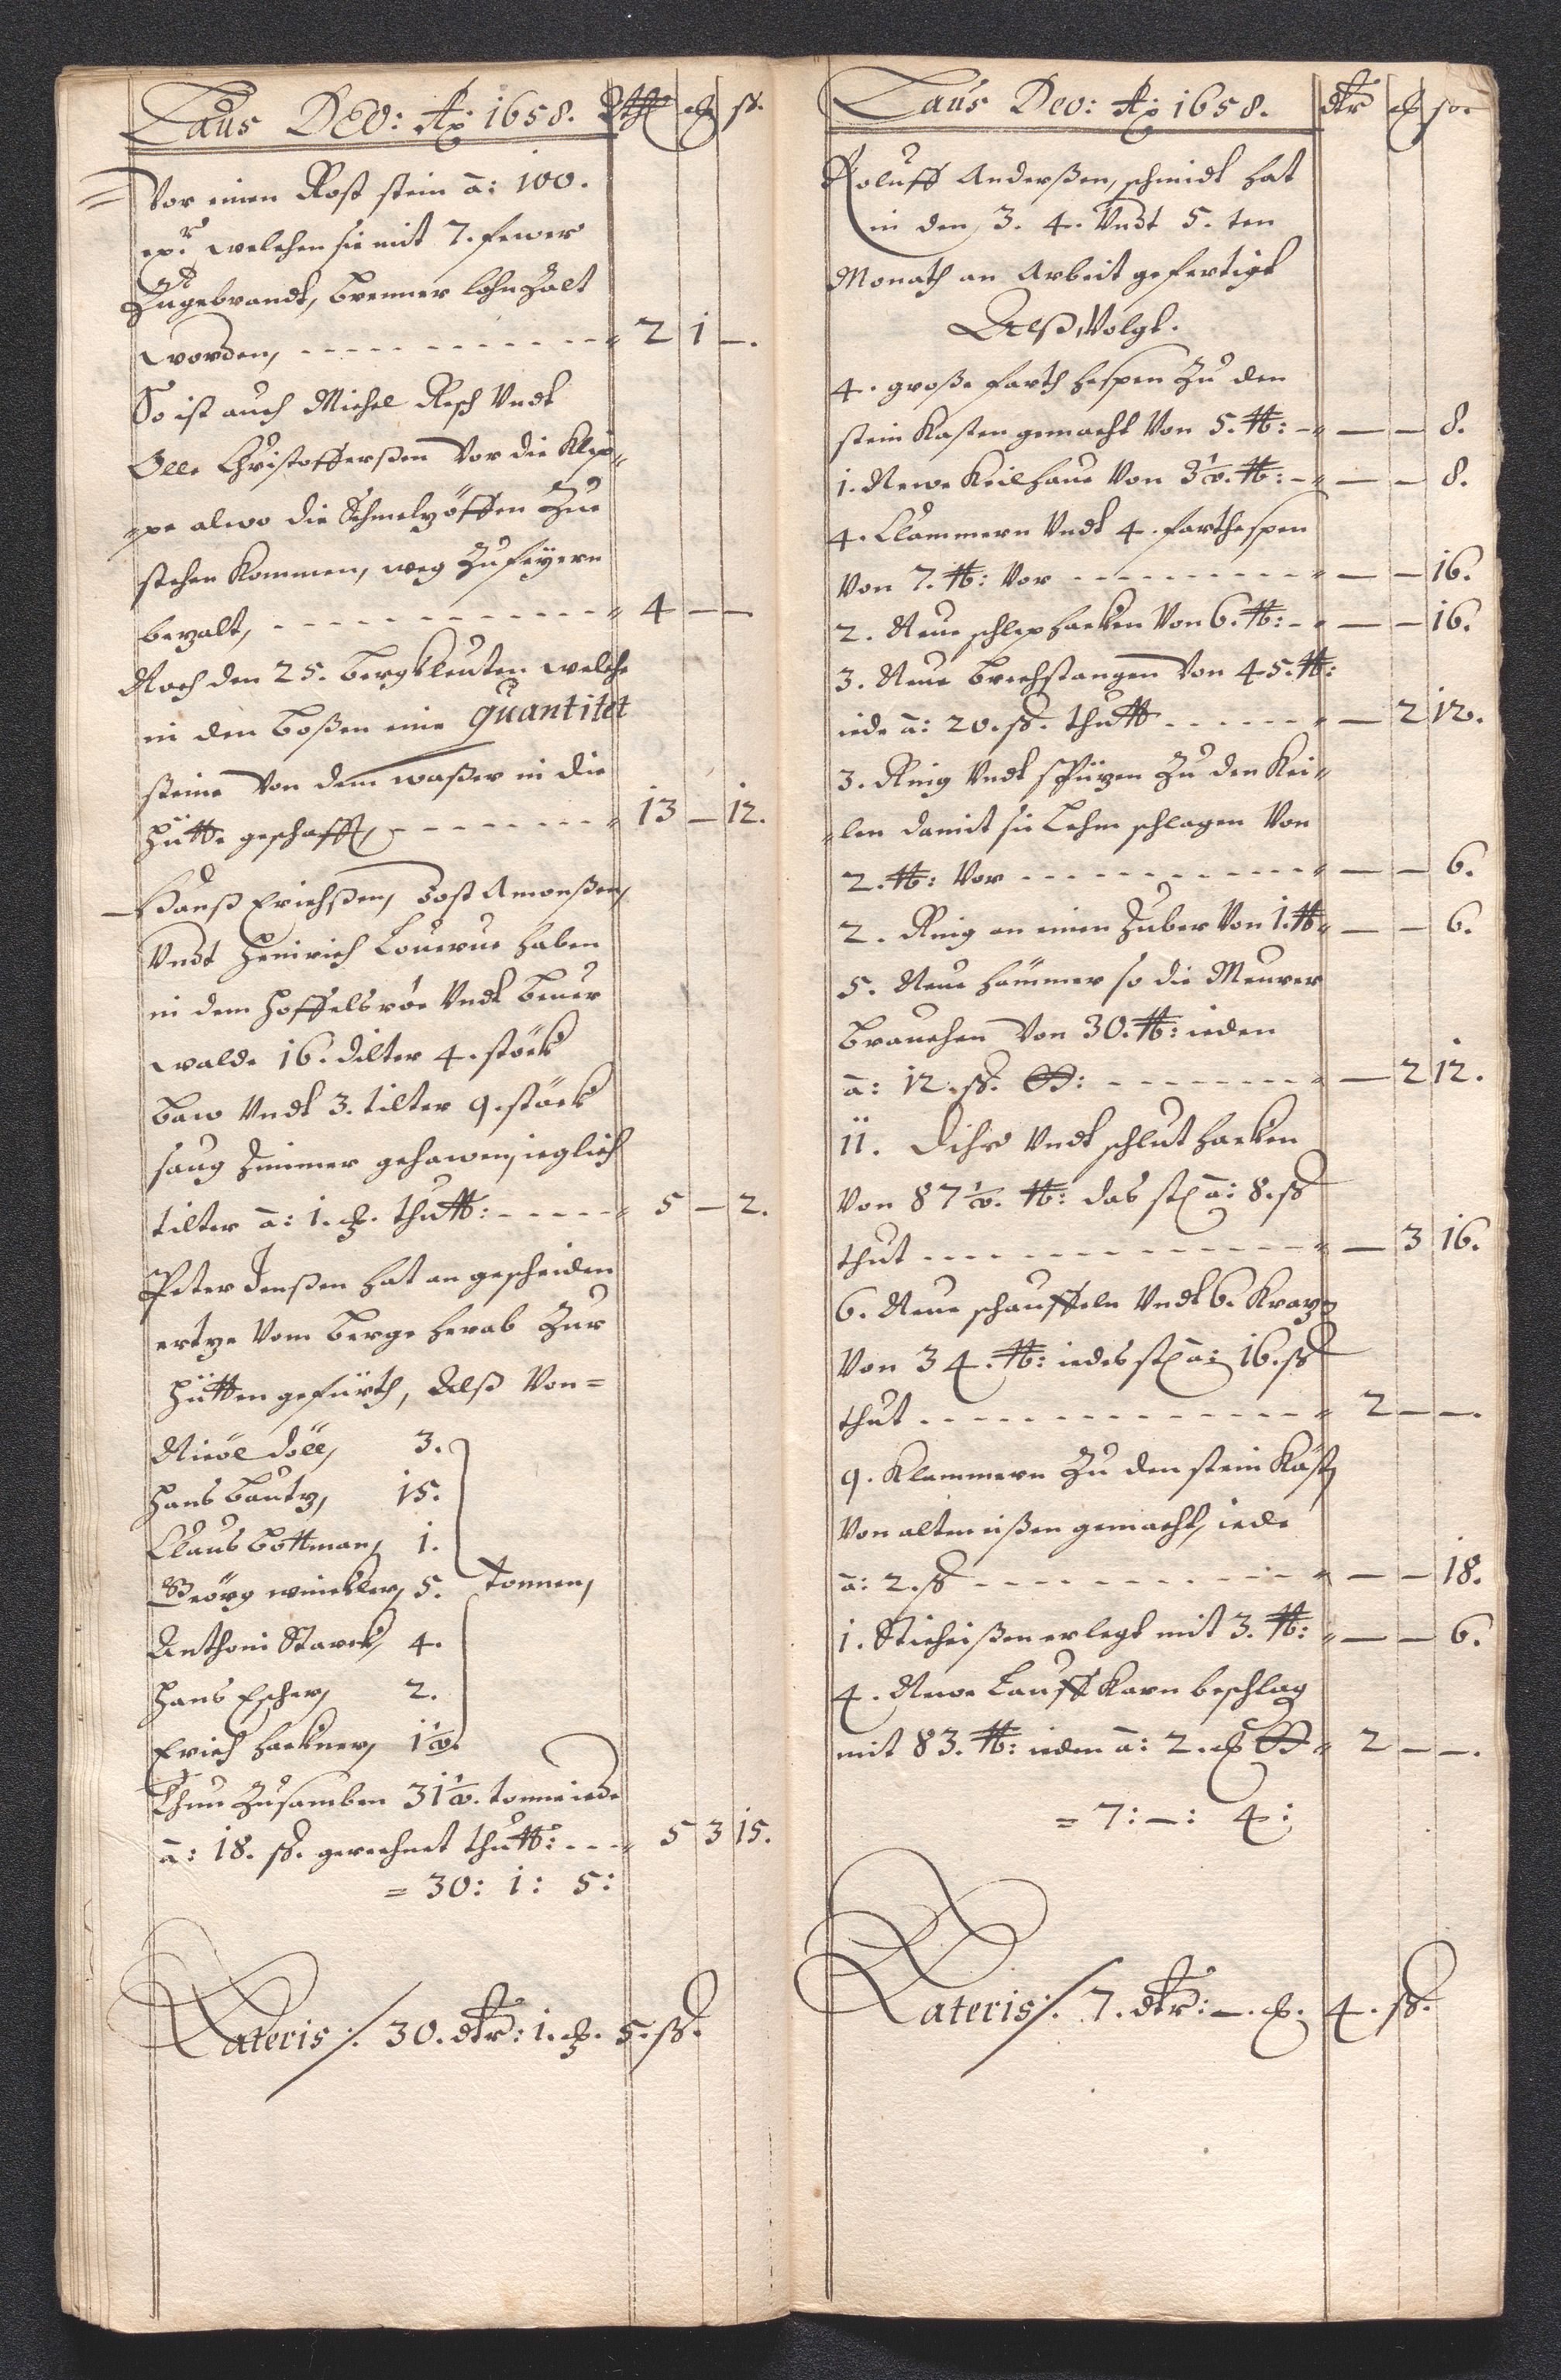 Laus DEO: Ao: 1658. Rth ort ß.
Vor einen Rost stein â: 100.
welchen sie mit 7. fewer
Zugebrandt, brenner lohn Zalt
worden, - - - - - - - - - - - 2 1 —.
So ist auch Michel Resch Vndt
Olle Christofferßen Vor die Klip„
„pe alwo die Schmelzöffen Zue
stehen Kommen, weg Zufeyern
bezalt, - - - - - - - - - - - 4 — —
Noch den 25. bergkleuten welche
in den boßen eine quantitet
steine Von dem waßer in die
Hütte geschafft, - - - - - - - - 13 — 12.
Hanß Erichßen, Jost Amonßen,
Vndt Heinrich Louerue haben
in dem Hoffelsröe Vndt bener
walde 16. dilter 4. stöck
baw Vndt 3. tilter 9. stöck
saug Zimmer gehawen, ieglich
tilter â: 1. ort. thutt: - - - - - 5 — 2.
Peter Jenßen hat an gescheiden
ertze Vom berge herab Zur
Hütten gefürth, Alß Von=
Nicol döll, 3.
Hans bautz, 15.
Claus bottman, 1.
Geörg winckler, 5. Tonnen,
Anthoni Starck, 4.
Hans Escher, 2.
Erich hackner, 1½.
Thun Zusamben 31½. tonne iede
â: 18. ß. gerechnet thutt: - - - 5 3 15.
= 30: 1: 5:
Lateris/. 30. dtr: 1. ort. 5. ß.
Laus Deo: Ao: 1658. dtr ort ß.
Roluff Anderßen, schmidt hat
in den 3. 4. Vndt 5. ten
Monath an Arbeit gefertigt
Alß Volgt.
4. große farth hespen Zu den
stein Kasten gemacht Von 5. ℔: - — — 8.
1. Newe Keilhaue Von 3½. ℔: - — — 8.
4. Clammern Vndt 4. farthespen
Von 7. ℔: Vor - - - - - - - - - — — 16.
2. Neue schlephacken Von 6. ℔: - — — 16.
3. Neue brechstangen Von 45. ℔:
iede â: 20. ß. thutt - - - - - - — 2 12.
3. Ring Vndt spitzen Zu den Kei„
„len damit sie Lehm schlagen Von
2. ℔: Vor - - - - - - - - - - - — — 6.
2. Ring an einen Zuber Von 1. ℔ — — 6.
5. Neue hämmer so die Meurer
brauchen Von 30. ℔: ieden
â: 12. ß. - - - - - - - - — 2 12.
11. Vndt schlut hacken
Von 87½. ℔: das st â: 8. ß
thut - - - - - - - - - - - - - — 3 16.
6. Neue schauffeln Vndt 6. Kratz
Von 34. ℔: iedes st â: 16. ß
thut - - - - - - - - - - - - - 2 — —.
9. Klammern Zu den stein Käst
Von alten eißen gemacht, iede
â: 2. ß - - - - - - - - - - - - — — 18.
1. Sticheißen erlegt mit 3. ℔: — — 6.
4. Newe Lauff Karn beschlag
mit 83. ℔: ieden â: 2. ort 2 — —.
= 7: —: 4:
Lateris/. 7. dtr: —. ort. 4. ß.